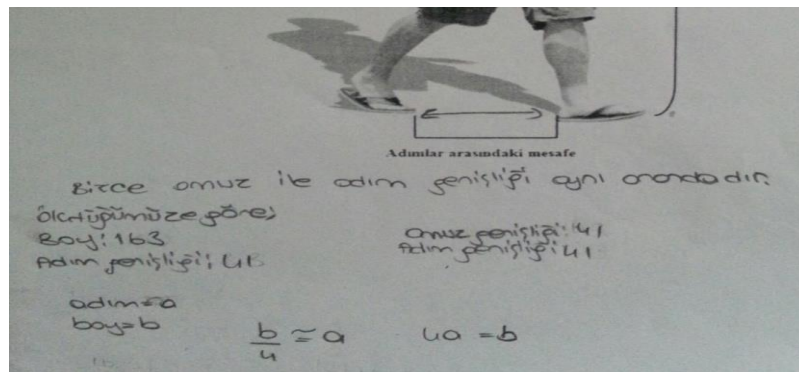 Adımlar arasındaki mesafe
Bizce omuz ile adım genişliği aynı orandadır.
Ölçtüğümüze göre;
Boy: 163
Adım genişliği: 41
Omuz genişliği: 41
Adım genişliği: 41
adım=a
boy=b
b/4 ≈ a
4a = b